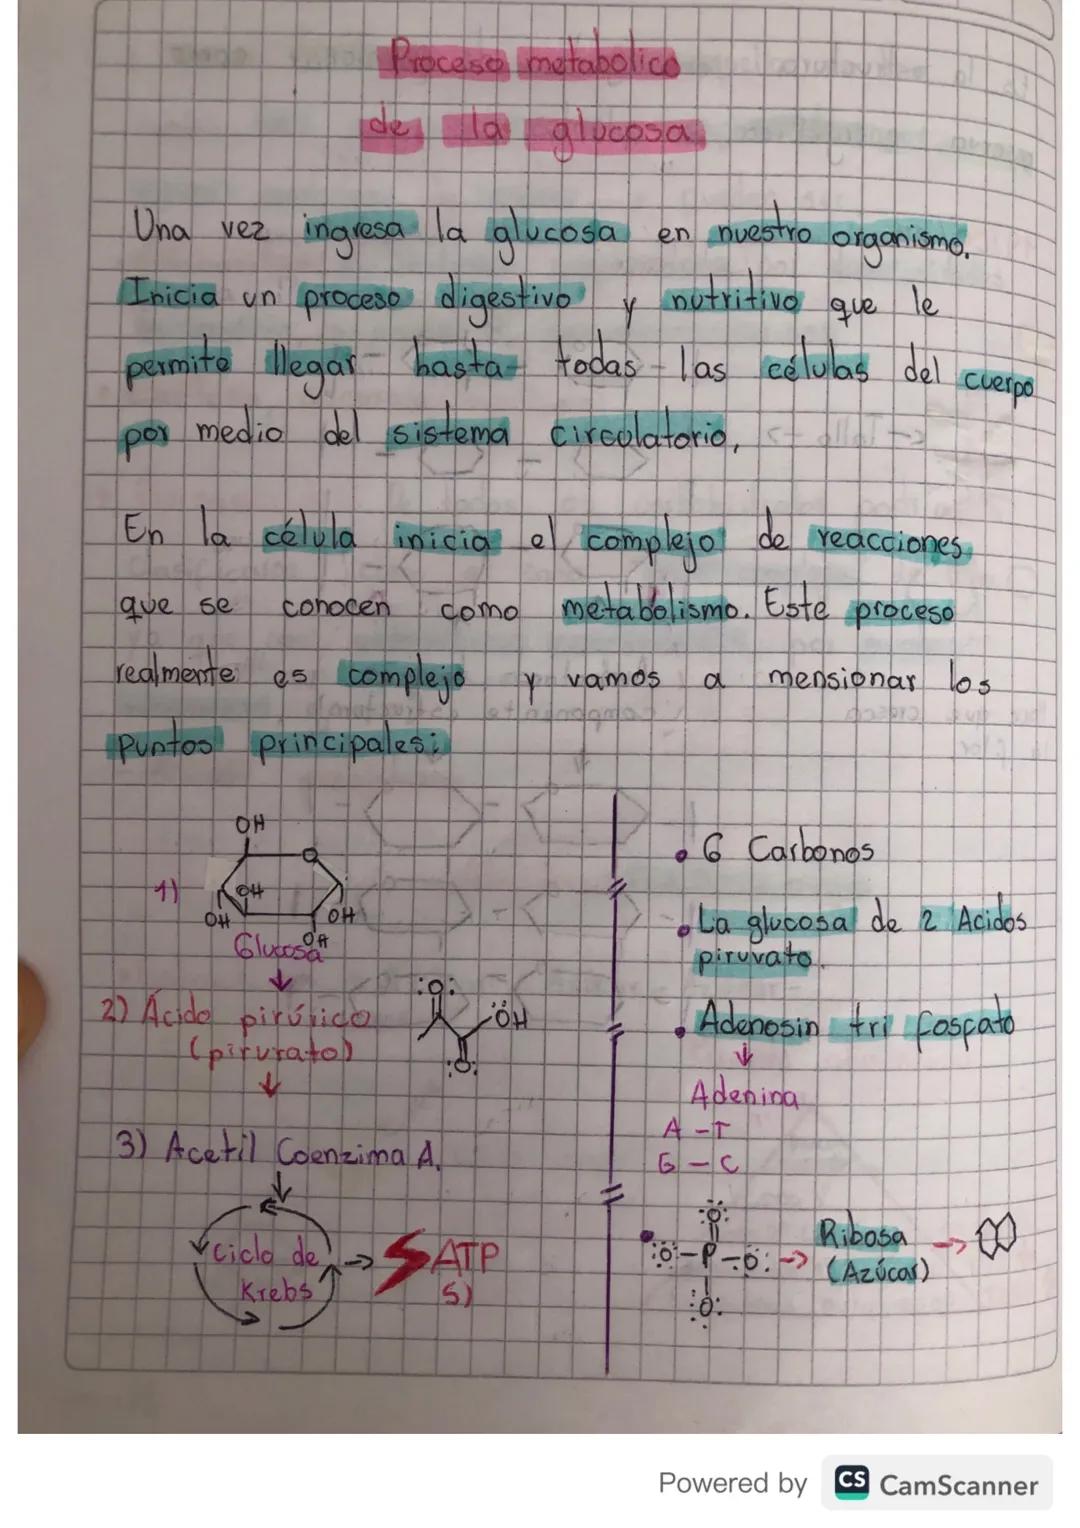 Proceso metabolico
de la glucosa
Una vez ingresa la glucosa en nuestro organismo.
Inicia un proceso digestivo y nutritivo que le
permite llegar hasta todas las células del cuerpo
por medio del sistema circulatorio,
En la célula inicia el complejo de reacciones
que se conocen como metabolismo. Este proceso
realmente es complejo y vamos a mensionar los
puntos principales:
OH
O
1)
OH
OH
OH
OH
Glucosa
2) Ácido pirúvico
(piruvato)
:O:
ÖH
:O:
3) Acetil Coenzima A.
Ciclo de
Krebs
ATP
5)
• 6 Carbonos
• La glucosa de 2 Acidos
piruvato.
• Adenosin tri fosfato
Adenina
A - T
G - C
:O:
:O - P - O:
:O:
Ribosa
(Azúcar)
Powered by CS CamScanner